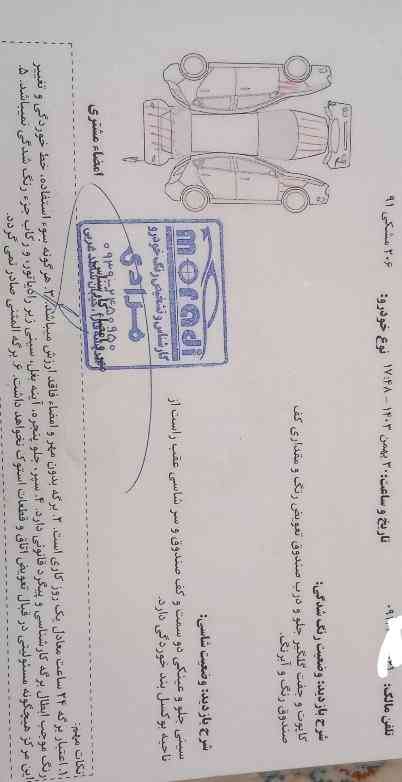 تلفن مالک: ۰۹۱
تاریخ و ساعت: ۳۰ بهمن ۱۴۰۳ - ۱۷:۴۸
نوع خودرو: ۲۰۶ مشکی ۹۱
شرح بازدید: وضعیت رنگ شدگی:
کاپوت و جفت گلگیر جلو و درب صندوق تعویض رنگ و مقداری کف
صندوق رنگ و آبرنگ.
شرح بازدید: وضعیت شاسی:
سینی جلو و عینکی دو سمت و کف صندوق و سر شاسی عقب راست از
ناحیه بوکسل بند خوردگی دارد.
moradi
کارشناسی و تشخیص رنگ خودرو
مرادی
مهر و امضاء کارشناس
امضاء مشتری
نکات مهم:
۱. اعتبار برگه ۲۴ ساعت معادل یک روز کاری است. ۲. برگه بدون مهر و امضاء فاقد ارزش میباشد. ۳. هرگونه سوء استفاده، خط خوردگی و تغییر
رنگ موجب ابطال برگه کارشناسی و پیگرد قانونی دارد. ۴. سپر، جلو پنجره، آینه بغل، سینی زیر رادیاتور، و رکاب جزء رنگ شدگی نمیباشد. ۵.
این مرکز هیچگونه مسئولیتی در قبال تعویض اتاق و قطعات استوک نخواهد داشت. ۶. برگه المثنی صادر نمی گردد.